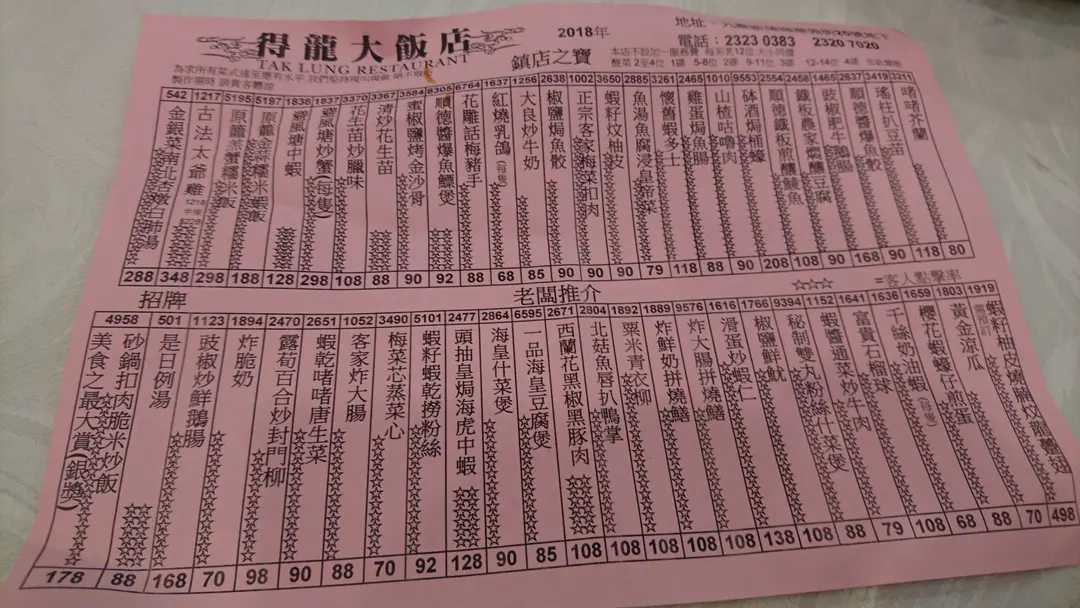 得龍大飯店
TAK LUNG RESTAURANT
2018年
鎮店之寶
電話：2323 0383 2320 7020
542 1217 5195 5197 1838 1837 3370 3367 3584 8305 6764 1637 1256 2638 1002 3650 2885 3261 2465 1010 9553 2554 2458 1465 2637 3419 3211
金銀菜南北杏燉白肺湯
古法太爺雞
原籠羔蟹糯米飯
原籠金蒜糯米蝦飯
避風塘中蝦
避風塘炒蟹(每隻)
花生苗炒臘味
清炒花生苗
蜜椒鹽烤金沙骨
順德醬爆魚鰾煲
花雕話梅豬手
紅燒乳鴿(每隻)
大良炒牛奶
椒鹽焗魚骹
正宗客家梅菜扣肉
蝦籽炆柚皮
魚湯魚腐浸皇帝菜
懷舊蝦多士
雞蛋焗魚腸
山楂咕嚕肉
砵酒焗桶蠔
順德鐵板煎釀鯪魚
鐵板農家燜釀豆腐
豉椒肥牛鴨腸
順德醬爆魚骹
瑤柱扒豆苗
啫啫芥蘭
288 348 298 188 128 298 108 88 90 92 88 68 85 90 90 90 79 118 88 90 208 108 90 168 90 118 80
招牌
老闆推介
☆☆☆=客人點擊率
4958 501 1123 1894 2470 2651 1052 3490 5101 2477 2864 6595 2671 2804 1892 1889 9576 1616 1766 9394 1152 1641 1636 1659 1803 1919
美食之最大賞(銀獎)
砂鍋扣肉脆米炒飯
是日例湯
豉椒炒鮮鵝腸
炸脆奶
露荀百合炒封門柳
蝦乾啫啫唐生菜
客家炸大腸
梅菜芯蒸菜心
蝦籽蝦乾撈粉絲
頭抽皇焗海虎中蝦
海皇什菜煲
一品海皇豆腐煲
西蘭花黑椒黑豚肉
北菇魚唇扒鴨掌
粟米青衣柳
炸鮮奶拼燒鱔
炸大腸拼燒鱔
滑蛋炒蝦仁
椒鹽鮮魷
秘制雙丸粉絲什菜煲
蝦醬通菜炒牛肉
富貴石榴球
千絲奶油蝦(每隻)
櫻花蝦蠔仔煎蛋
黃金涼瓜
178 88 168 70 98 90 88 70 92 128 90 85 108 108 108 108 108 108 138 108 88 79 108 68 88 70 498